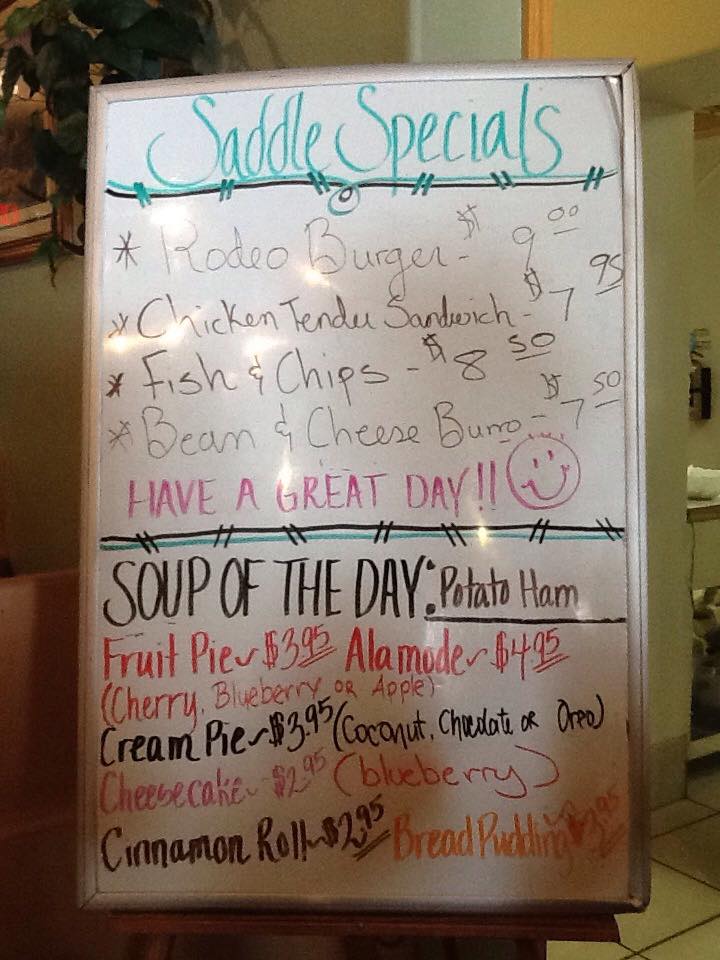 Saddle Specials
* Rodeo Burger - $9.00
* Chicken Tender Sandwich - $7.95
* Fish & Chips - $8.50
* Bean & Cheese Burro - $7.50
HAVE A GREAT DAY!!
SOUP OF THE DAY: Potato Ham
Fruit Pie ~ $3.95 Alamode ~ $4.95
(Cherry, Blueberry or Apple)
Cream Pie ~ $3.95 (Coconut, Chocolate or Oreo)
Cheesecake ~ $2.95 (blueberry)
Cinnamon Roll ~ $2.95 Bread Pudding